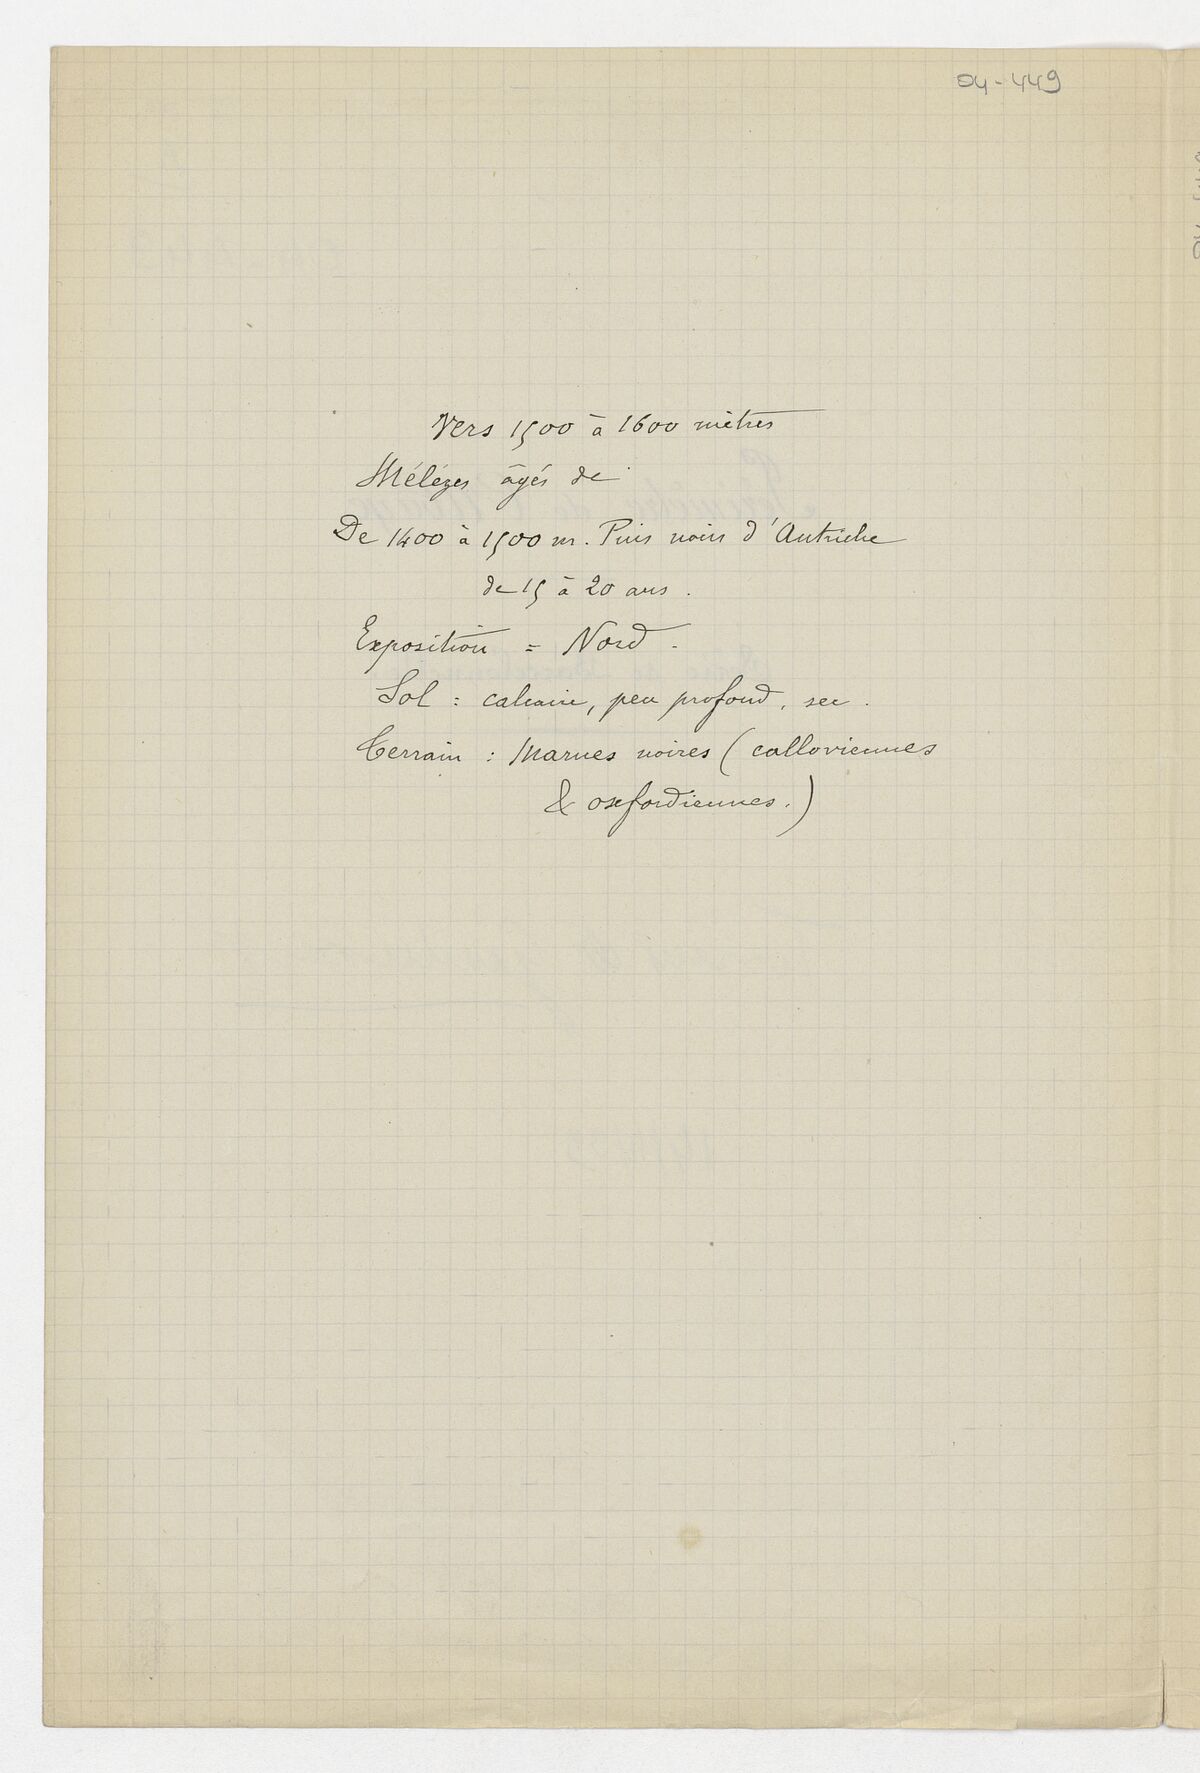 04-449
Vers 1500 à 1600 mètres
Mélèzes âgés de
De 1400 à 1500 m. Pins noirs d'Autriche
de 15 à 20 ans.
Exposition = Nord.
Sol : calcaire, peu profond, sec.
Terrain : Marnes noires (calloviennes
& oxfordiennes.)